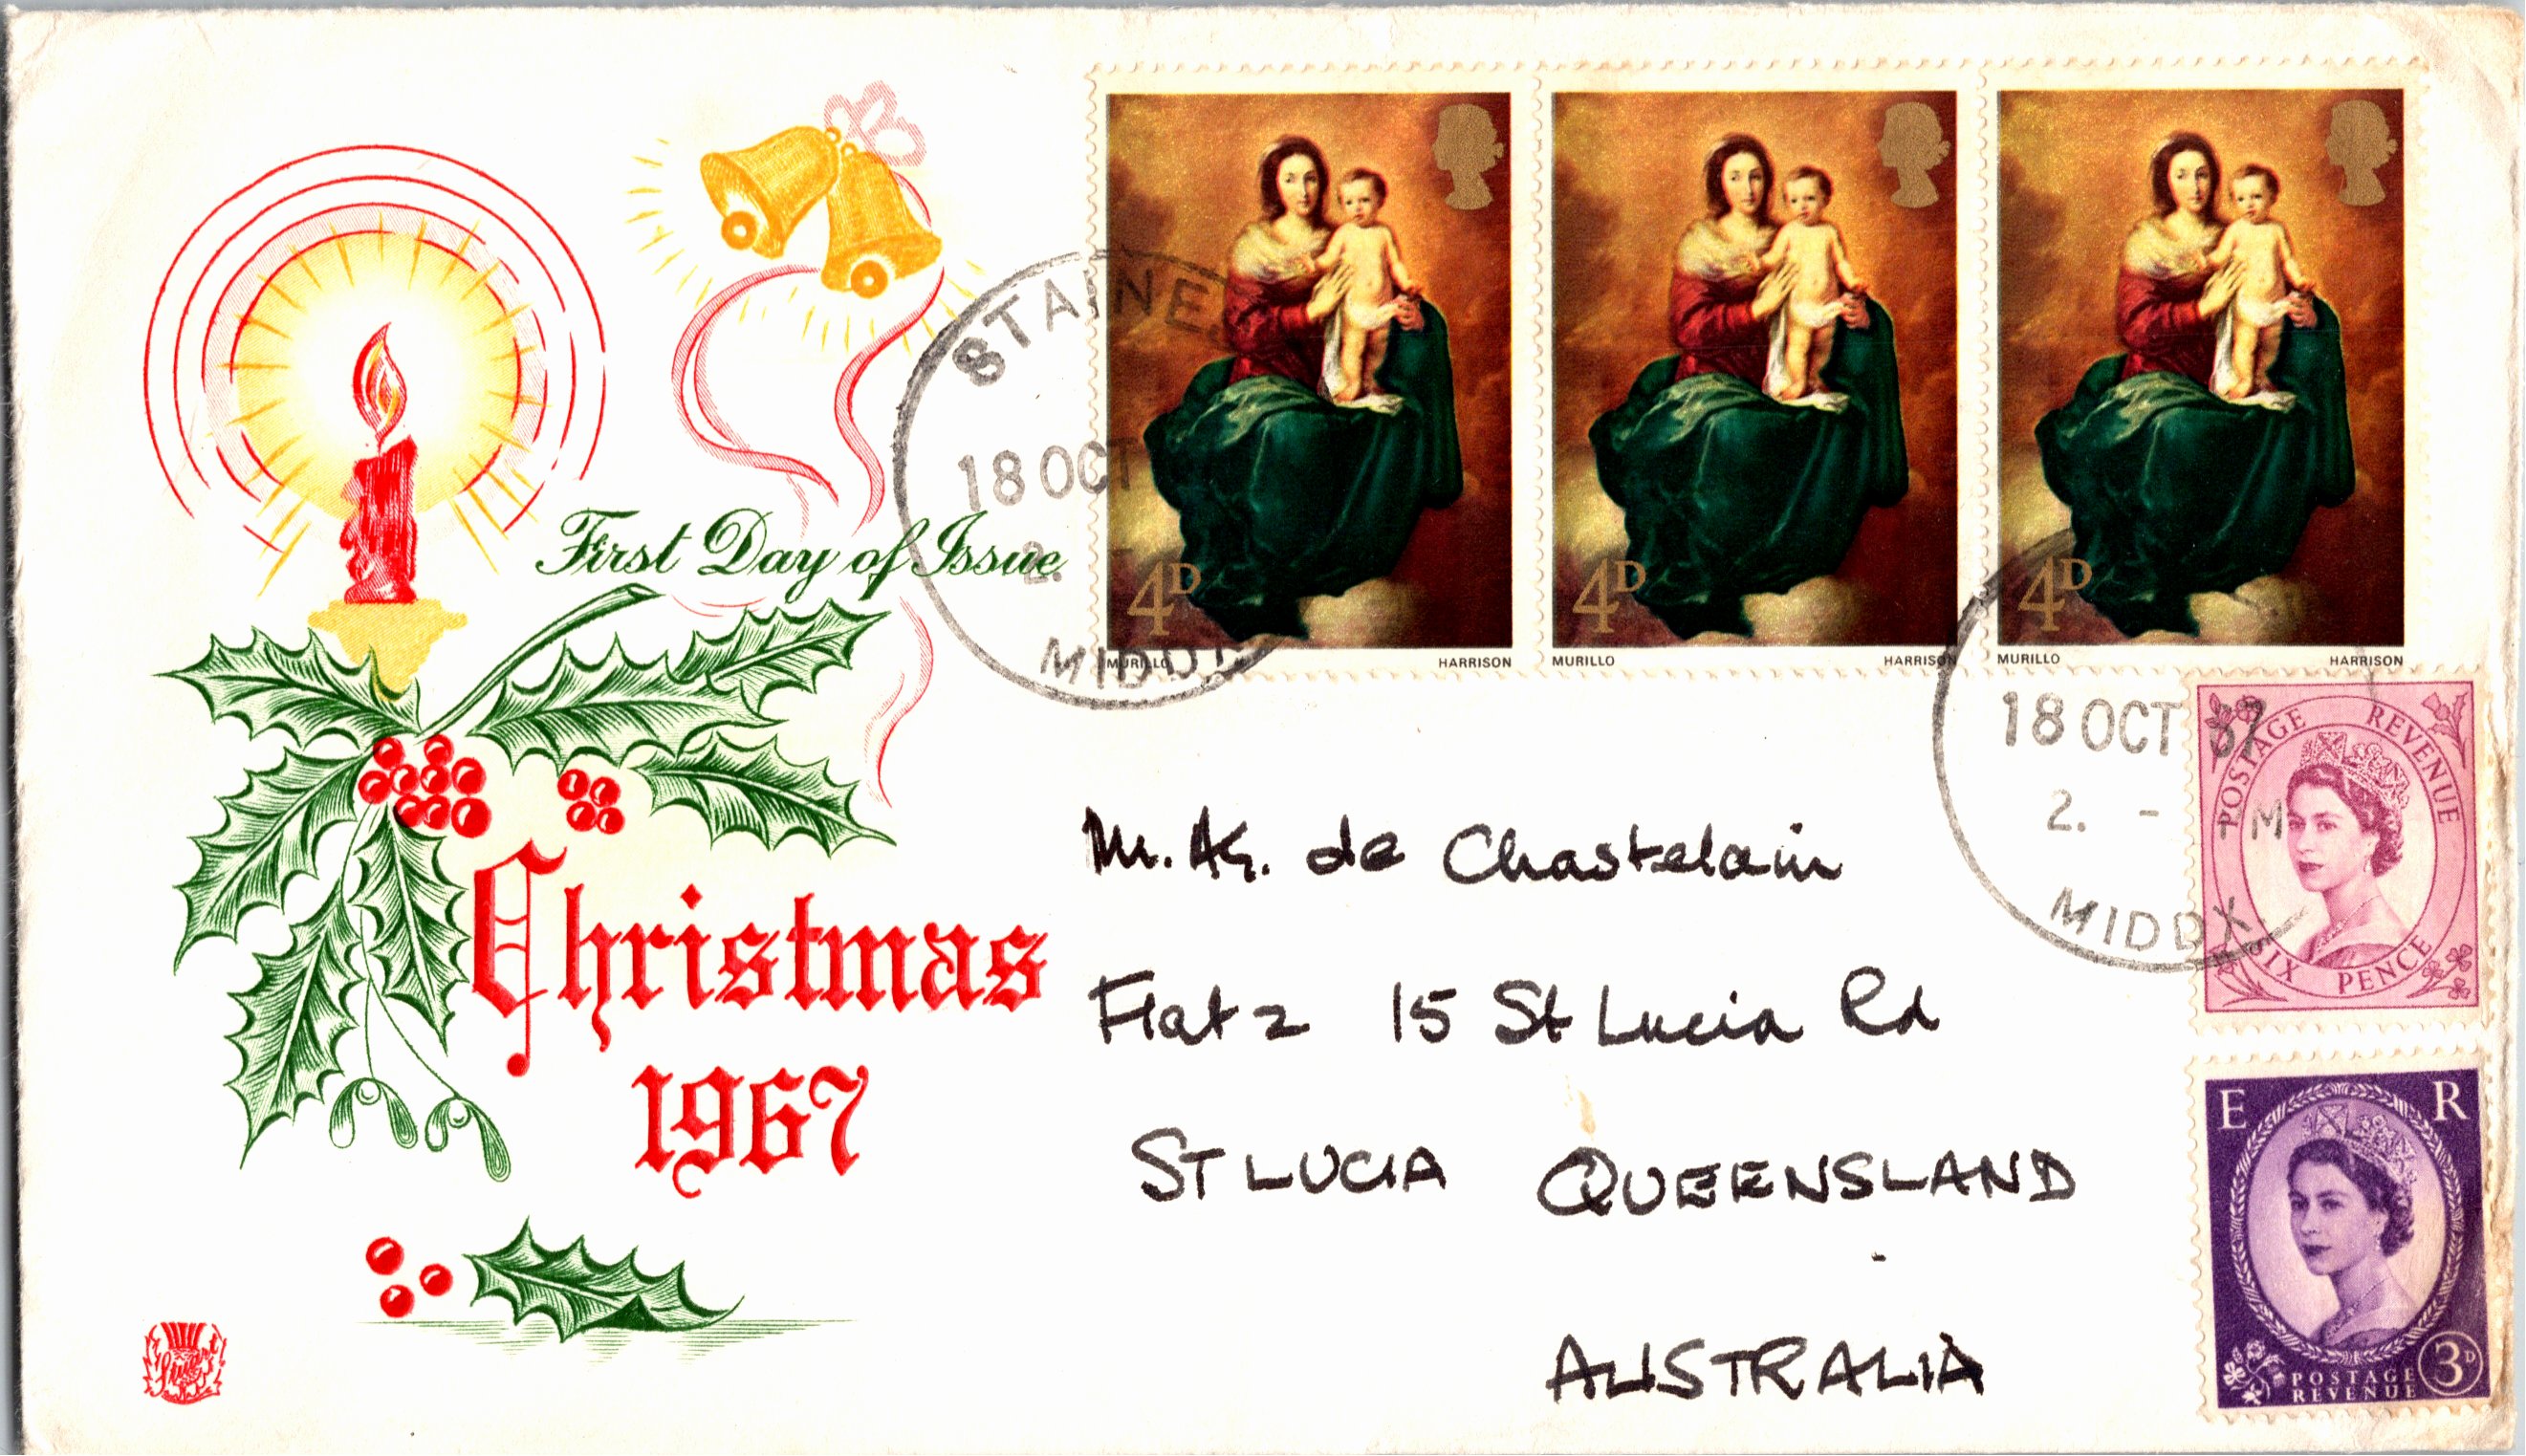 STAINES
18 OCT
2.
MIDDX
4D
MURILLO HARRISON
4D
MURILLO HARRISON
4D
MURILLO HARRISON
First Day of Issue
Christmas
1967
18 OCT 67
2. - PM
MIDDX
POSTAGE REVENUE
SIX PENCE
E R
3D
POSTAGE
REVENUE
M. AG. de Chastelain
Flat 2 15 St Lucia Rd
ST LUCIA QUEENSLAND
AUSTRALIA
Stuart